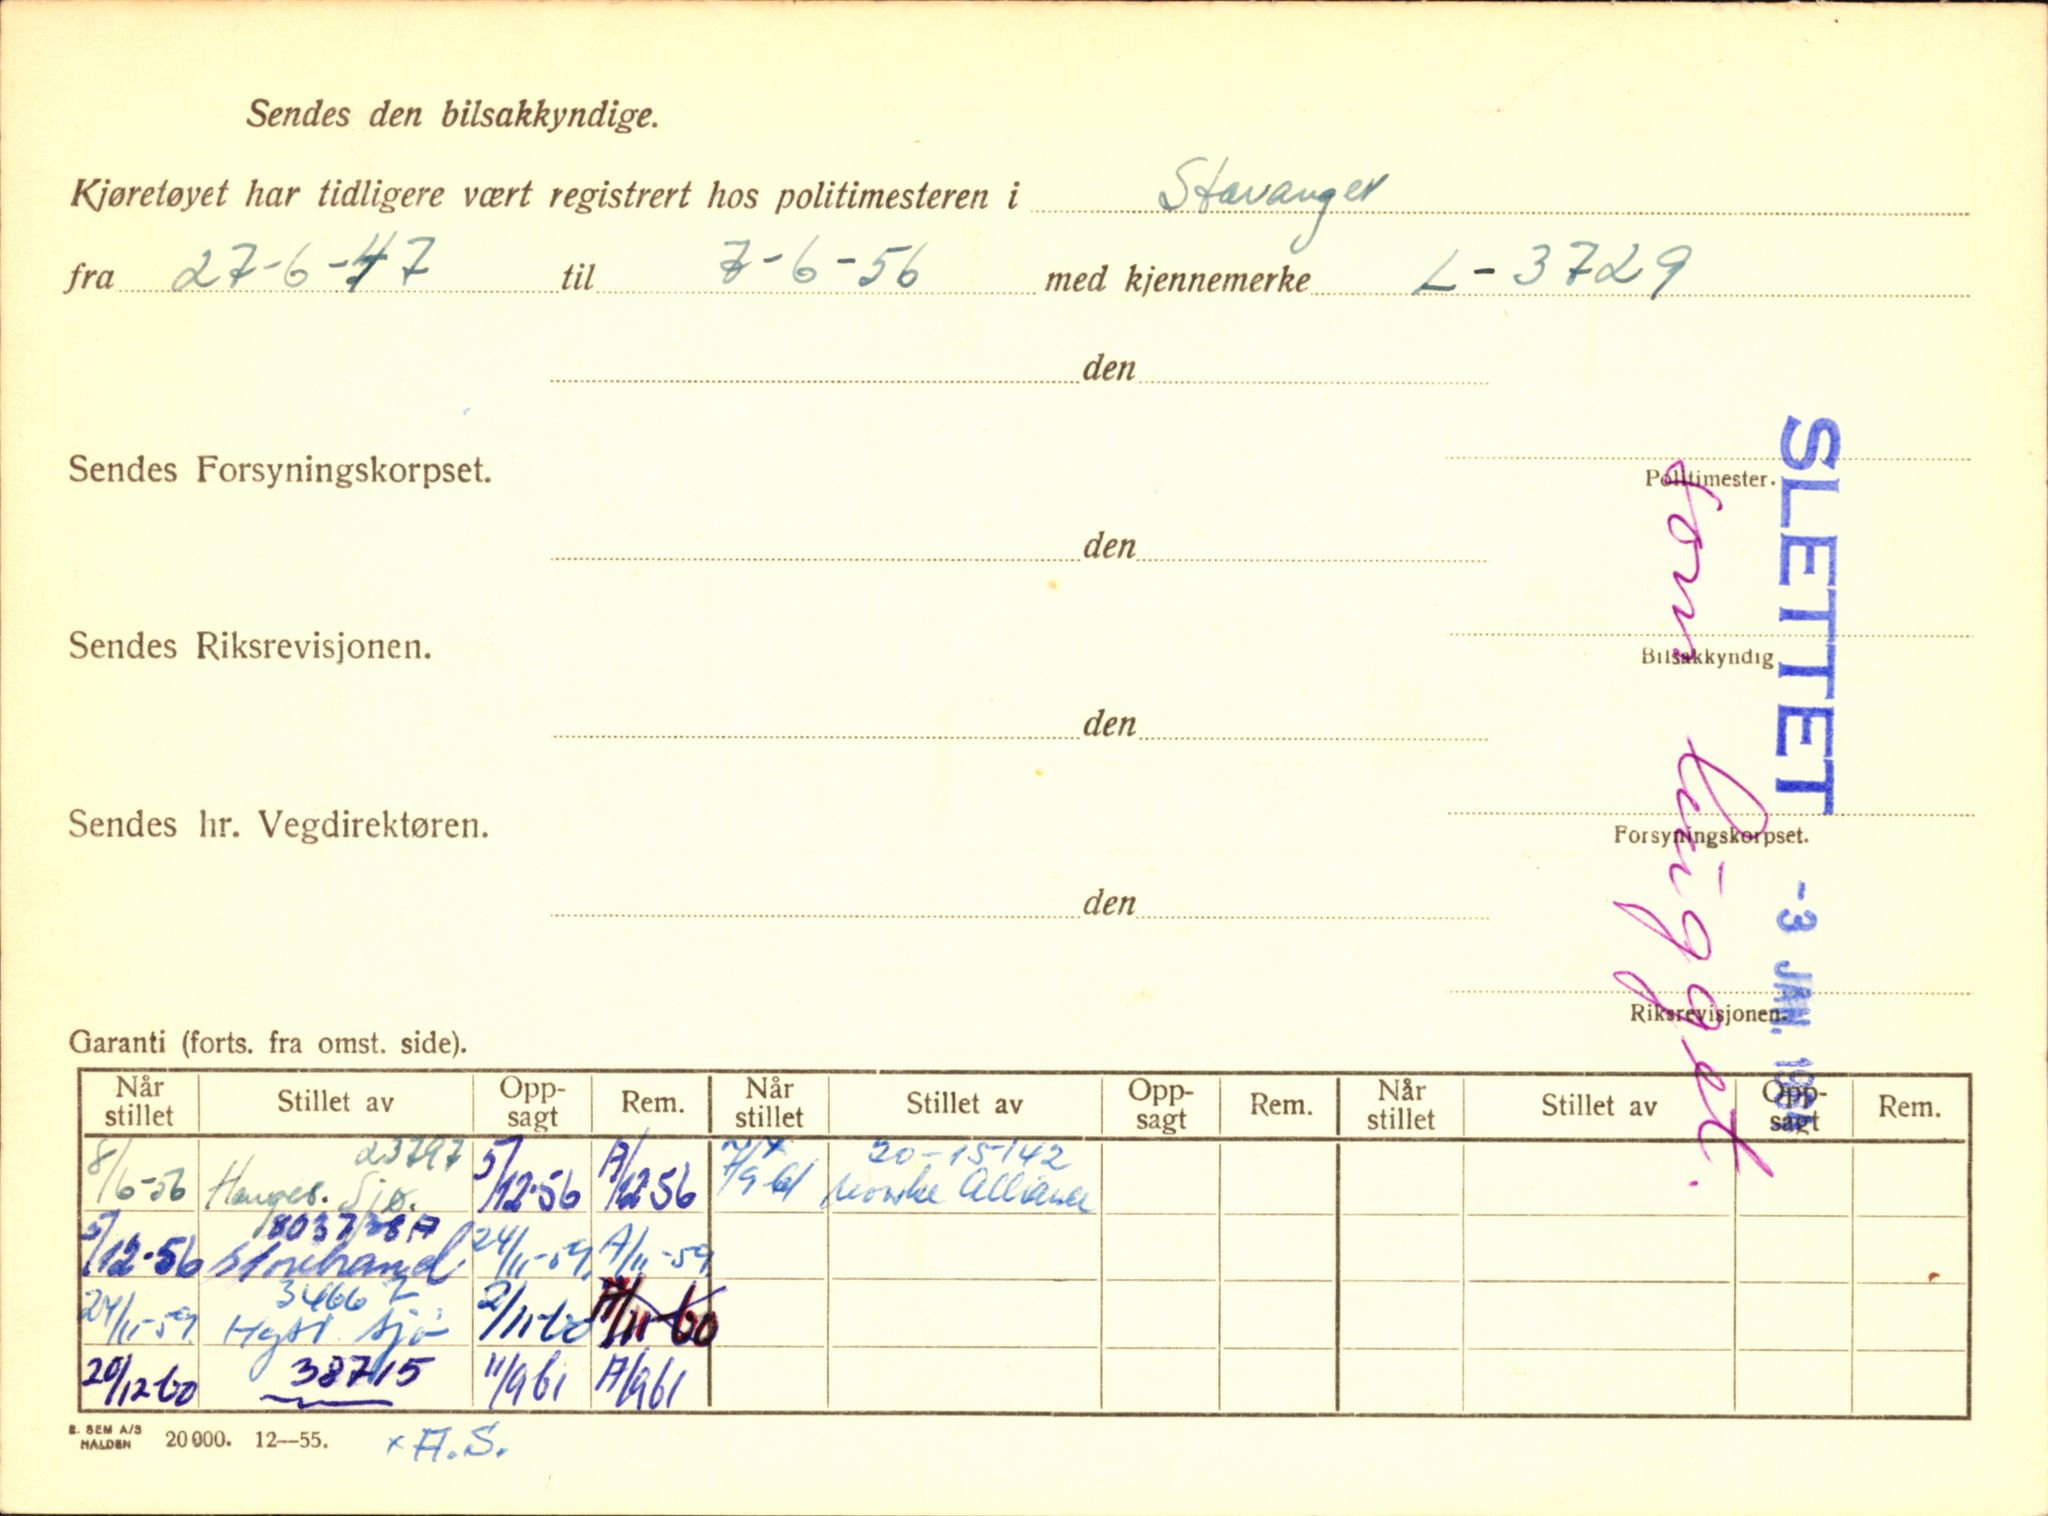 Sendes den bilsakkyndige.
Kjøretøyet har tidligere vært registrert hos politimesteren i Stavanger
fra 27-6-47 til 7-6-56 med kjennemerke L-3729
den
Politimester.
Sendes Forsyningskorpset.
den
Bilsakkyndig
Sendes Riksrevisjonen.
den
Forsyningskorpset.
Sendes hr. Vegdirektøren.
den
Riksrevisjonen.
SLETTET -3 JAN. 196
som
Garanti (forts. fra omst. side).
Når stillet Stillet av Opp-sagt Rem. Når stillet Stillet av Opp-sagt Rem. Når stillet Stillet av Opp-sagt Rem.
23797 20-15142
8/6-56 Hauges. Sjø. 5/12-56 A/12 56 Norske Alliance
803738A
5/12-56 Storebrand 24/11-59 A/11-59
3466
24/11-59 sjø 2/11-60 A/11-60
20/12 60 38715 11/9 61 A/9 61
E. SEM A/S
HALDEN 20 000. 12—55. x A.S.